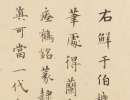 右鮮于伯
筆處得蘭
瘞鶴銘篆隸
真可當一代